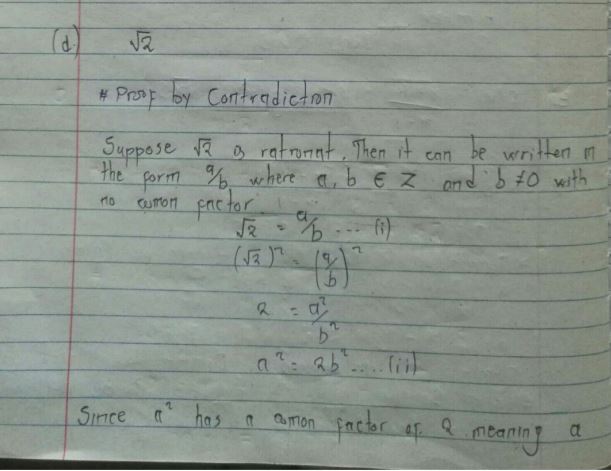 (d.) √2
# Proof by Contradiction
Suppose √2 is rational. Then it can be written in
the form a/b where a, b ∈ Z and b ≠ 0 with
no comon factor.
√2 = a/b ... (i)
(√2)² = (a/b)²
2 = a²/b²
a² = 2b² .... (ii)
Since a² has a comon factor of 2 meaning a